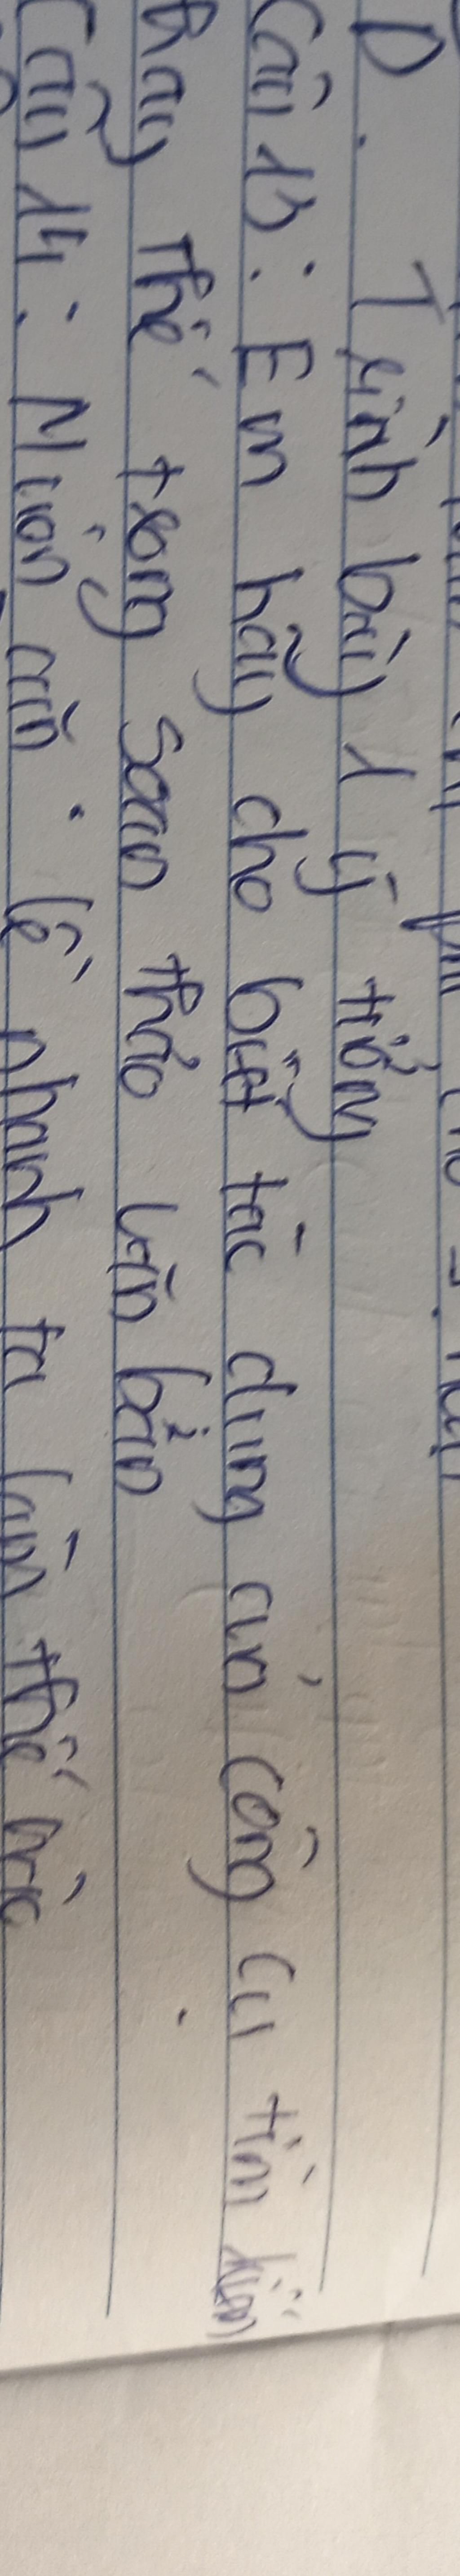 D. Trình bày 1 ý tưởng
Câu 13: Em hãy cho biết tác dụng của công cụ tìm kiếm
thay thế trong soạn thảo văn bản
Câu 14: Muốn căn lề nhanh ta làm thế nào